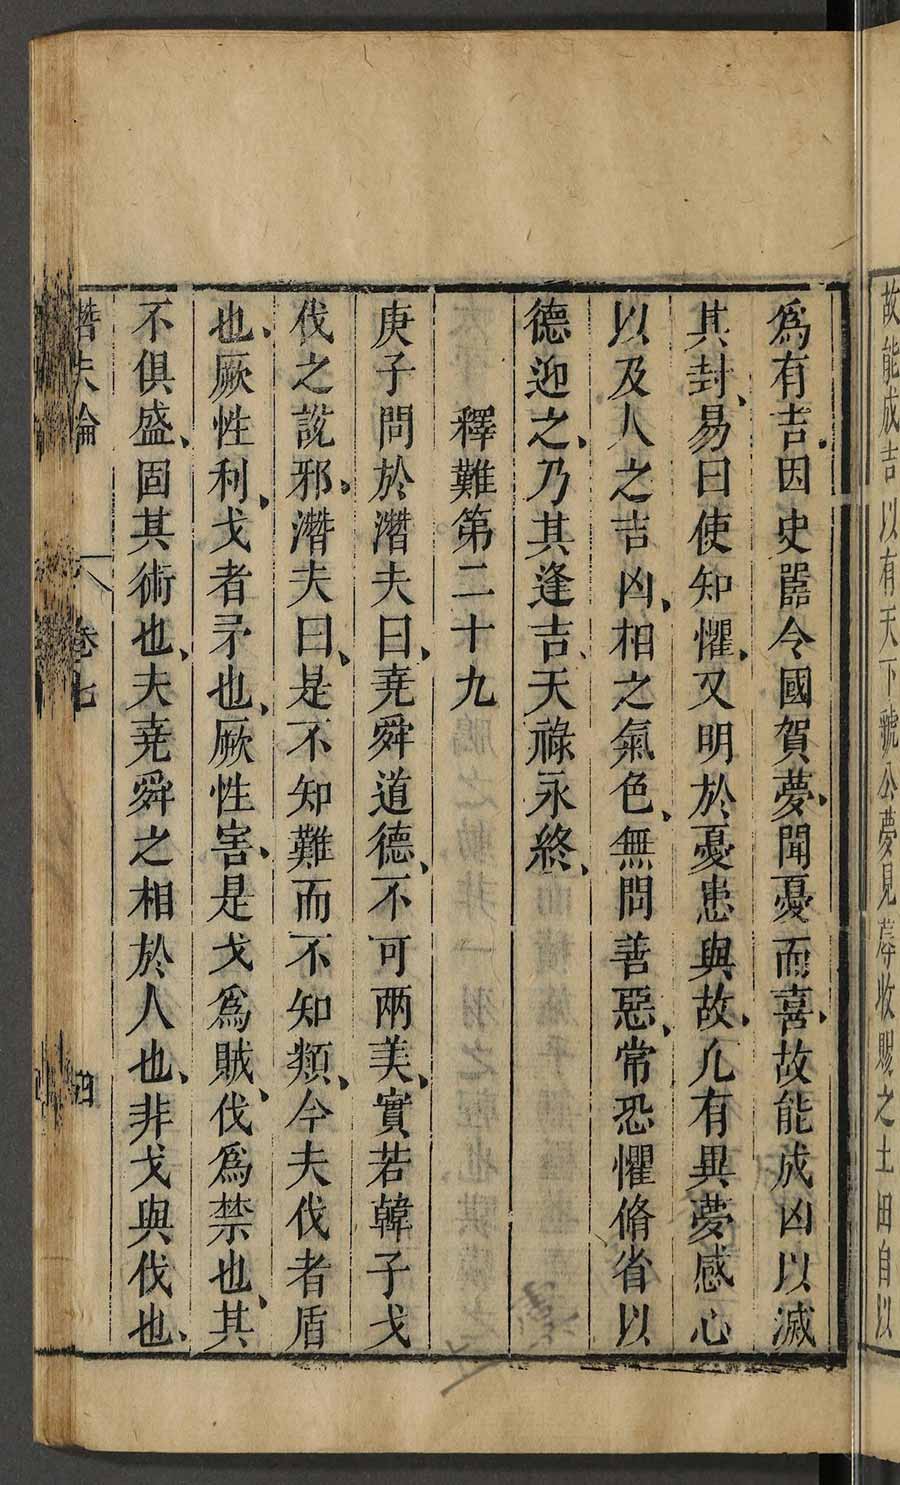 故能成吉以有天下虢公夢見蓐收賜之土田自以
爲有吉因史嚚令國賀夢聞憂而喜故能成凶以滅
其封易曰使知懼又明於憂患與故凡有異夢感心
以及人之吉凶相之氣色無問善惡常恐懼脩省以
德迎之乃其逢吉天祿永終
釋難第二十九
庚子問於潛夫曰堯舜道德不可兩美實若韓子戈
伐之說邪潛夫曰是不知難而不知類今夫伐者盾
也厥性利戈者矛也厥性害是戈爲賊伐爲禁也其
不俱盛固其術也夫堯舜之相於人也非戈與伐也
潛夫論 卷七 四